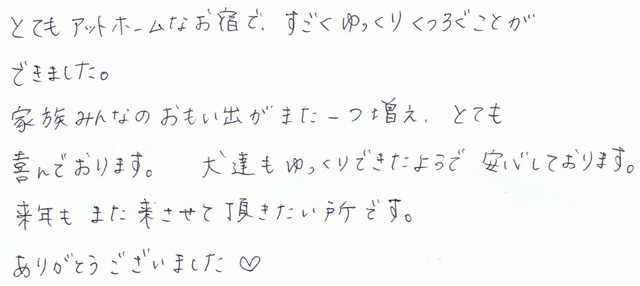 とてもアットホームなお宿で、すごくゆっくりくつろぐことが
できました。
家族みんなのおもい出がまた一つ増え、とても
喜んでおります。 犬達もゆっくりできたようで 安心しております。
来年も また 来させて頂きたい所です。
ありがとうございました♡